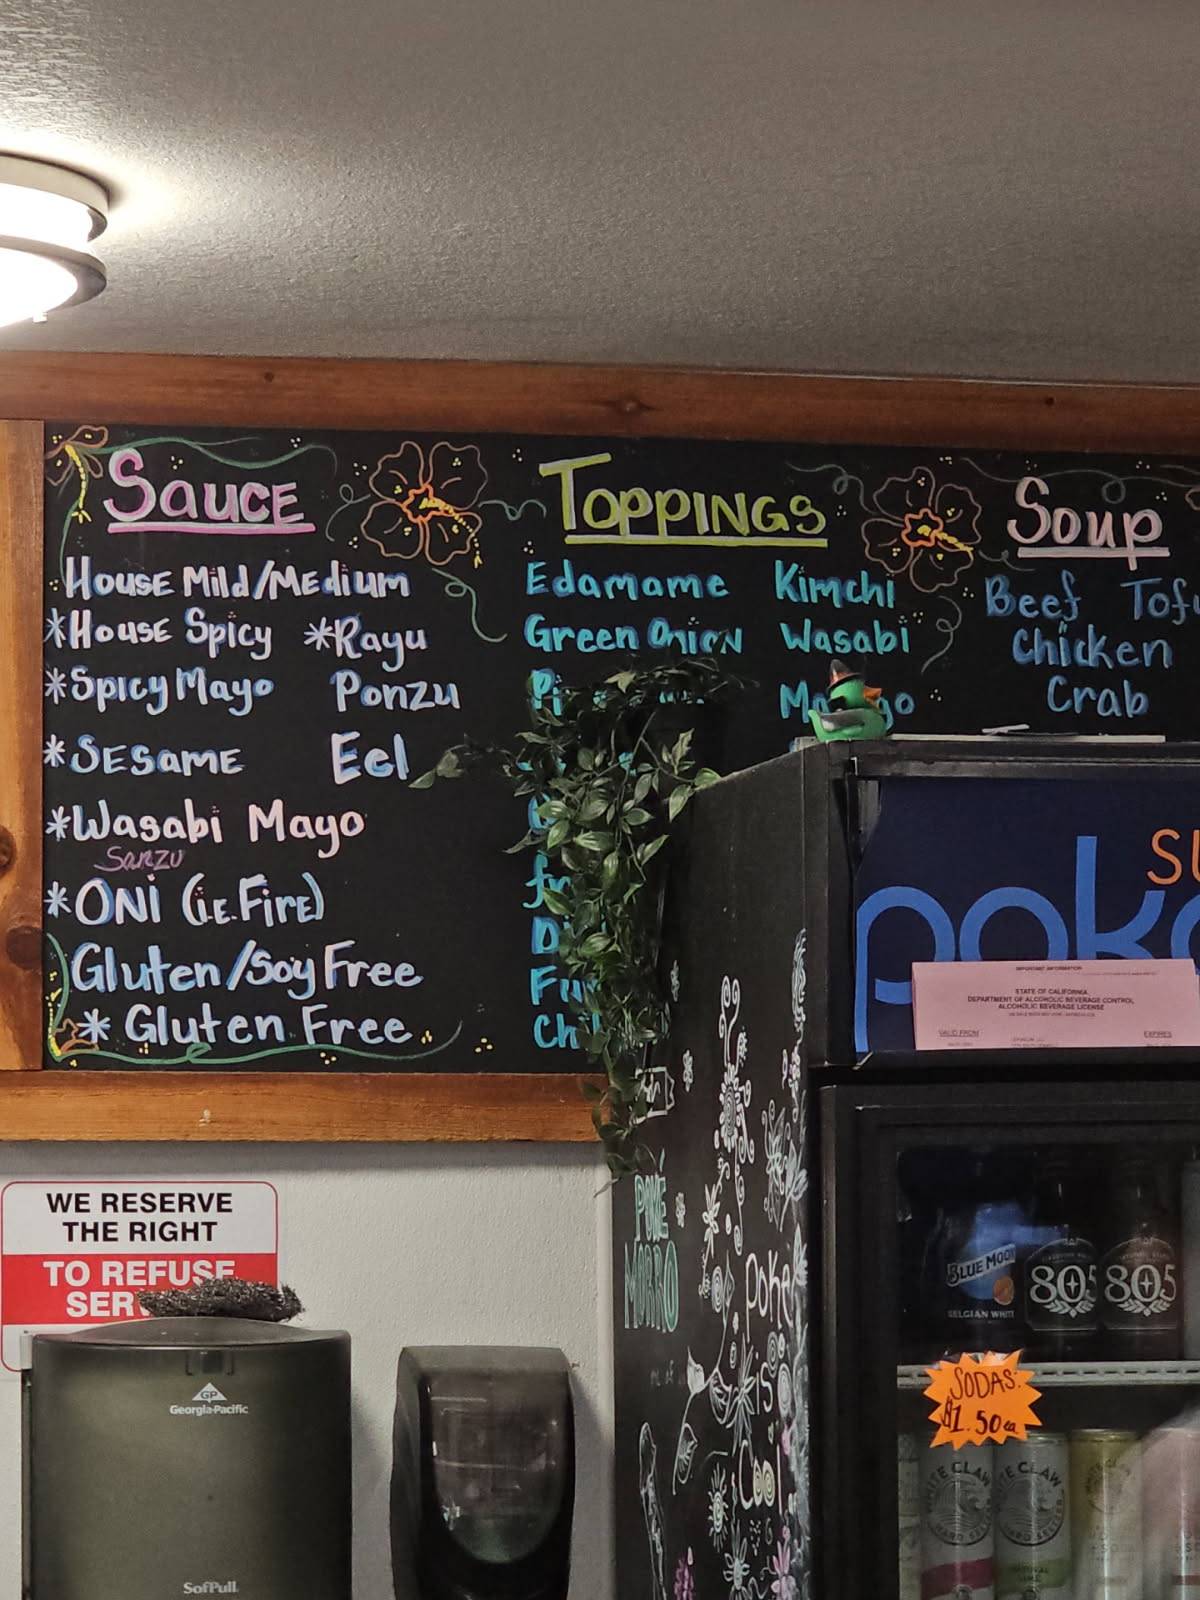 Sauce
House Mild/Medium
*House Spicy *Rayu
*Spicy Mayo Ponzu
*Sesame Eel
*Wasabi Mayo
Sanzu
*ONI (i.e. Fire)
Gluten/Soy Free
* Gluten Free
Toppings
Edamame Kimchi
Green Onion Wasabi
Soup
Beef
Chicken
Crab
poke
STATE OF CALIFORNIA
DEPARTMENT OF ALCOHOLIC BEVERAGE CONTROL
ALCOHOLIC BEVERAGE LICENSE
VALID FROM EXPIRES
WE RESERVE
THE RIGHT
TO REFUSE
GP
Georgia-Pacific
SofPull
POKÉ
MORRO
poke
is
Cool
BLUE MOON
BELGIAN WHITE
805 805
SODAS:
$1.50 ea
WHITE CLAW
HARD SELTZER
WHITE CLAW